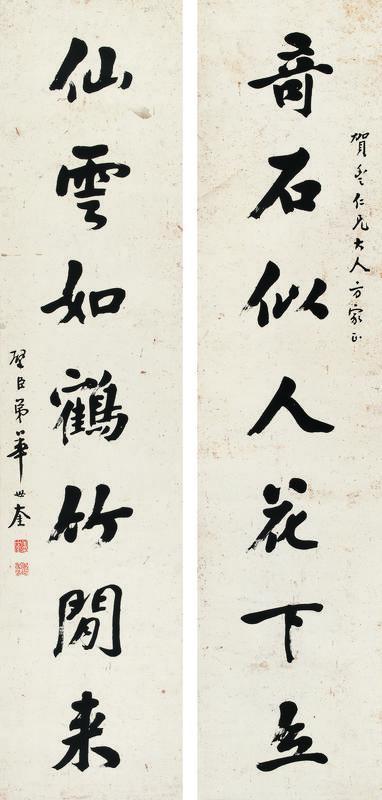 竒石似人花下立
賀仁兄大人方家正
仙雲如鶴竹閒来
璧臣弟華世奎